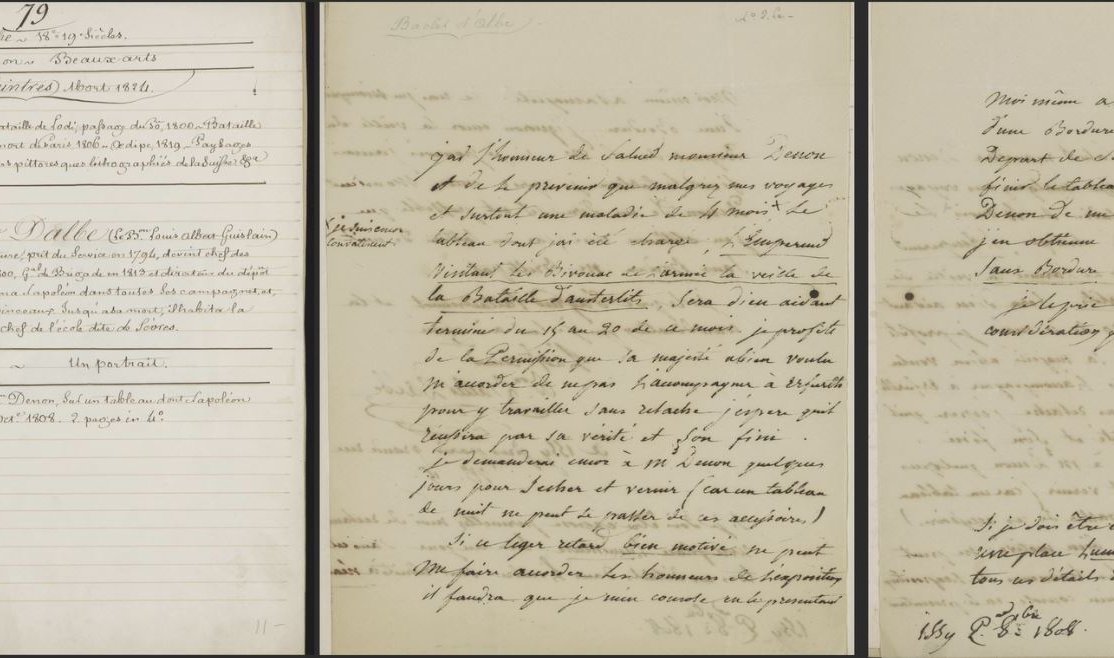 79
18e 19e Siècles.
on ~ Beaux-arts
eintres) Mort 1824.
ataille de Lodi, passage du Pô, 1800 ~ Bataille
mort de Paris 1806 ~ Oedipe, 1819 ~ Paysages
s pittoresques lithographiés de la Suisse &a
Dalbe (Le Bon Louis Albert Guislain)
prit du Service en 1794, devint chef des
Gal de Brigade en 1813 et directeur du dépôt
na Napoléon dans toutes ses campagnes, et,
pinceaux. Jusqu'à sa mort, il habita la
chef de l'école dite de Sèvres.
~ Un portrait.
Denon, Sur un tableau dont Napoléon
Oct.re 1808. 2 pages in 4o.
11 -
Bacler d'Albe
j'ai l'honneur de Saluer monsieur Denon
et de le prevenir que malgrez mes voyages
et surtout une maladie de 4 mois + Le
+ je suis encor
convalescent
tableau dont j'ai été chargé, L'Empereur
Visitant les Bivouac de l'armée la veille de
la Bataille d'austerlits, Sera dieu aidant
terminé du 15 au 20 de ce mois. je profite
de la Permission que sa majesté a bien voulu
m'accorder de ne pas l'accompagner à Erfurth
pour y travailler sans relache j'espere qu'il
reussira par sa vérité et Son fini.
je demanderai encor à Mr Denon quelques
jours pour Secher et vernir (car un tableau
de nuit ne peut Se passer de ces accessoires)
Si ce leger retard bien motivé ne peut
me faire accorder les honneurs de l'exposition
il faudra que je m'en console en le presentant
Moi même a
d'une Bordure
Depart de
finir le tableau
Denon de
j'en obtienne
Sans Bordure
je le prie
considération
Si je dois être
une place
tous ces détails
Issy 8bre 1808.